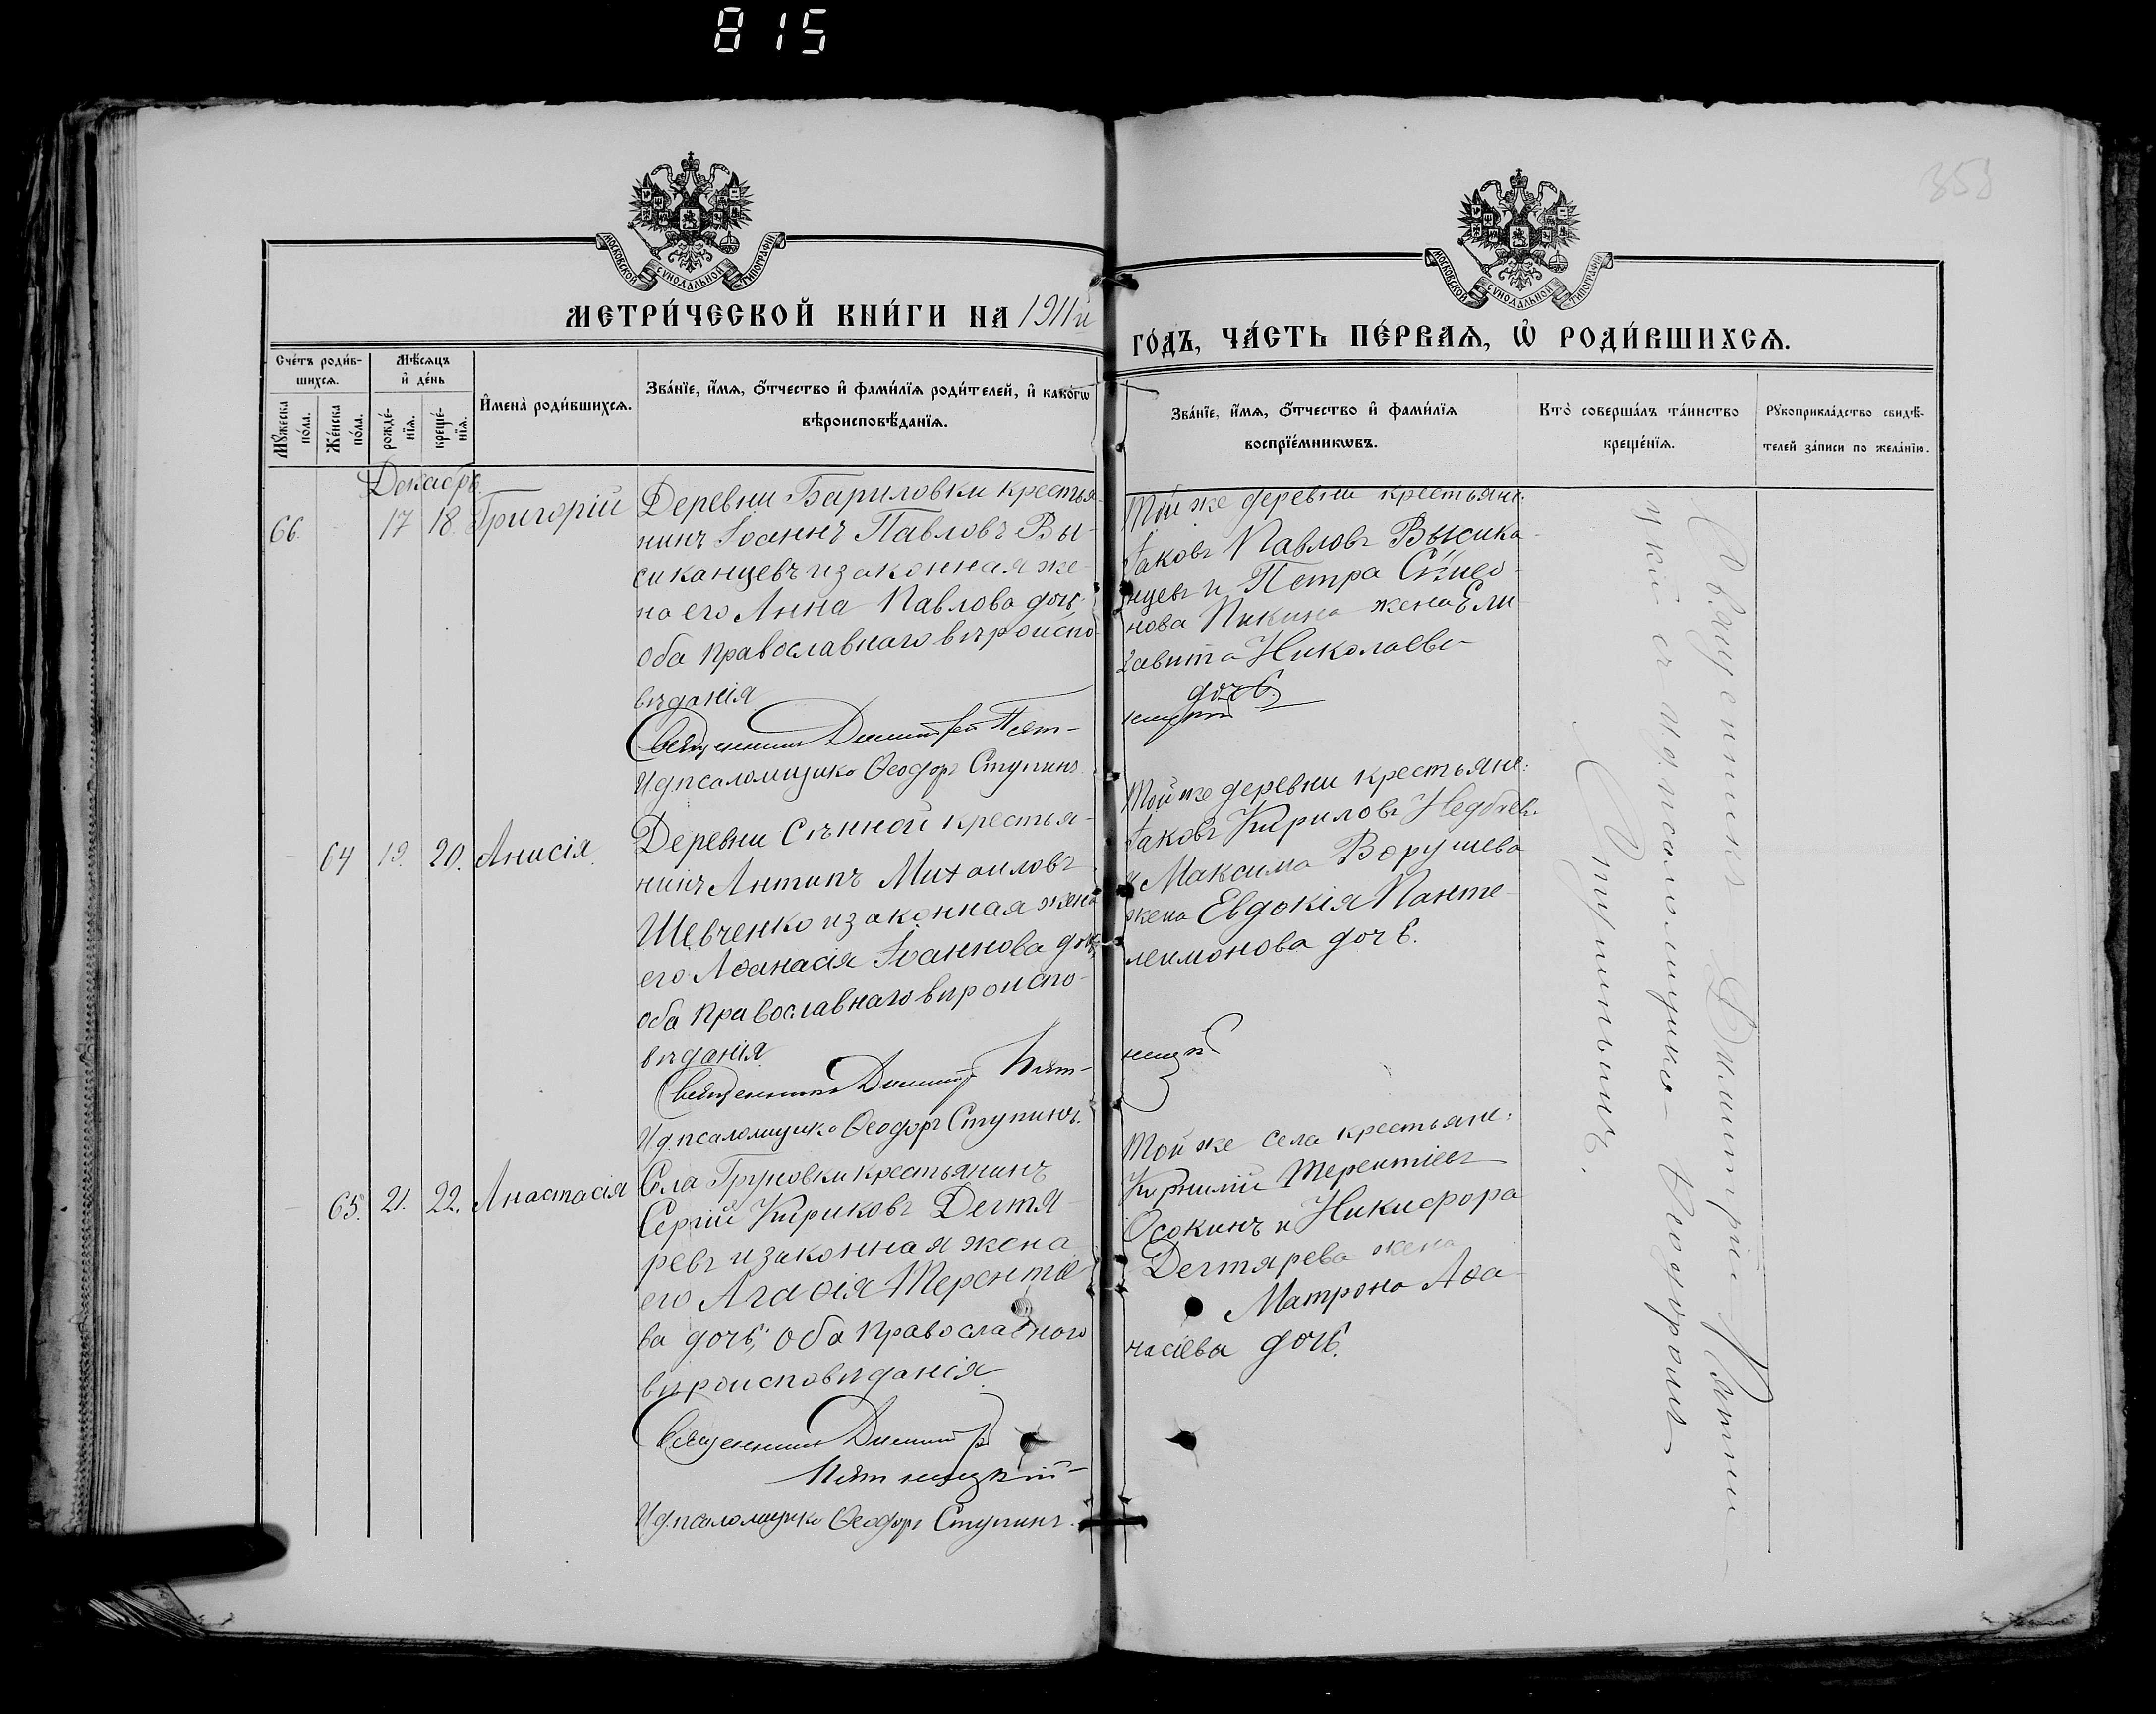 815
353
МОСКОВСКОЙ СѴНОДАЛЬНОЙ ТИПОГРАФІИ
МОСКОВСКОЙ СѴНОДАЛЬНОЙ ТИПОГРАФІИ
МЕТРИ́ЧЕСКОЙ КНИ́ГИ НА 1911й
ГО́ДЪ, ЧА́СТЬ ПЕ́РВАЯ, Ѡ҆ РОДИ́ВШИХСЯ.
Сче́тъ роди́в-
шихся.
Мꙋжеска по́ла.
Же́нска по́ла.
Мѣ́сяцъ
и҆ де́нь
рожде́-
нїя.
креще́-
нїя.
И҆мена̀ роди́вшихся.
Зва́нїе, и҆́мя, ѻ҆́тчество и҆ фами́лїя роди́телей, и҆ како́гѡ
вѣроисповѣ́данїя.
Зва́нїе, и҆́мя, ѻ҆́тчество и҆ фами́лїя
воспрїе́мникѡвъ.
Кто̀ соверша́лъ та́инство
креще́нїя.
Рꙋкоприкла́дство свидѣ́-
телей за́писи по жела́нїю.
Декабрь
66. - 17 18. Григорій
Деревни Бариловки крестья-
нинъ Іоаннъ Павловъ Вы-
сиканцевъ и законная же-
на его Анна Павлова дочь,
оба православнаго вѣроиспо-
вѣданія
Священникъ Димитрій Пят-
И.д. псаломщика Ѳеодоръ Ступинъ.
Той же деревни крестьяне:
Іаковъ Павловъ Высика-
нцевъ и Петра
нова жена Ели-
завета Николаева
дочь.
ницкій
- 64 19. 20. Анисія.
Деревни Сѣнной крестья-
нинъ Антипъ Михаиловъ
Шевченко и законная жена
его Аѳанасія Іоаннова дочь,
оба православнаго вѣроиспо-
вѣданія.
Священникъ Димитр. Пят-
И.д. псаломщика Ѳеодоръ Ступинъ.
Той же деревни крестьяне:
Іаковъ Кириловъ
и Максима Ворушева
жена Евдокія Панте-
леимонова дочь.
ницкій
- 65. 21. 22. Анастасія
Села Груновки крестьянинъ
Сергій Кириковъ Дегтя-
ревъ и законная жена
его Агаѳія Терентіе-
ва дочь, оба православного
вѣроисповѣданія.
Священникъ Димитр
Пятницкій
И.д. псаломщика Ѳеодоръ Ступинъ.
Той же села крестьяне:
Корнилій Терентіевъ
Осокинъ и Никифора
Дегтярева жена
Матрона Аѳа-
насіева дочь.
Священникъ Димитрій Пятни-
цкій съ и.д. псаломщика Ѳеодоромъ
Ступинымъ.